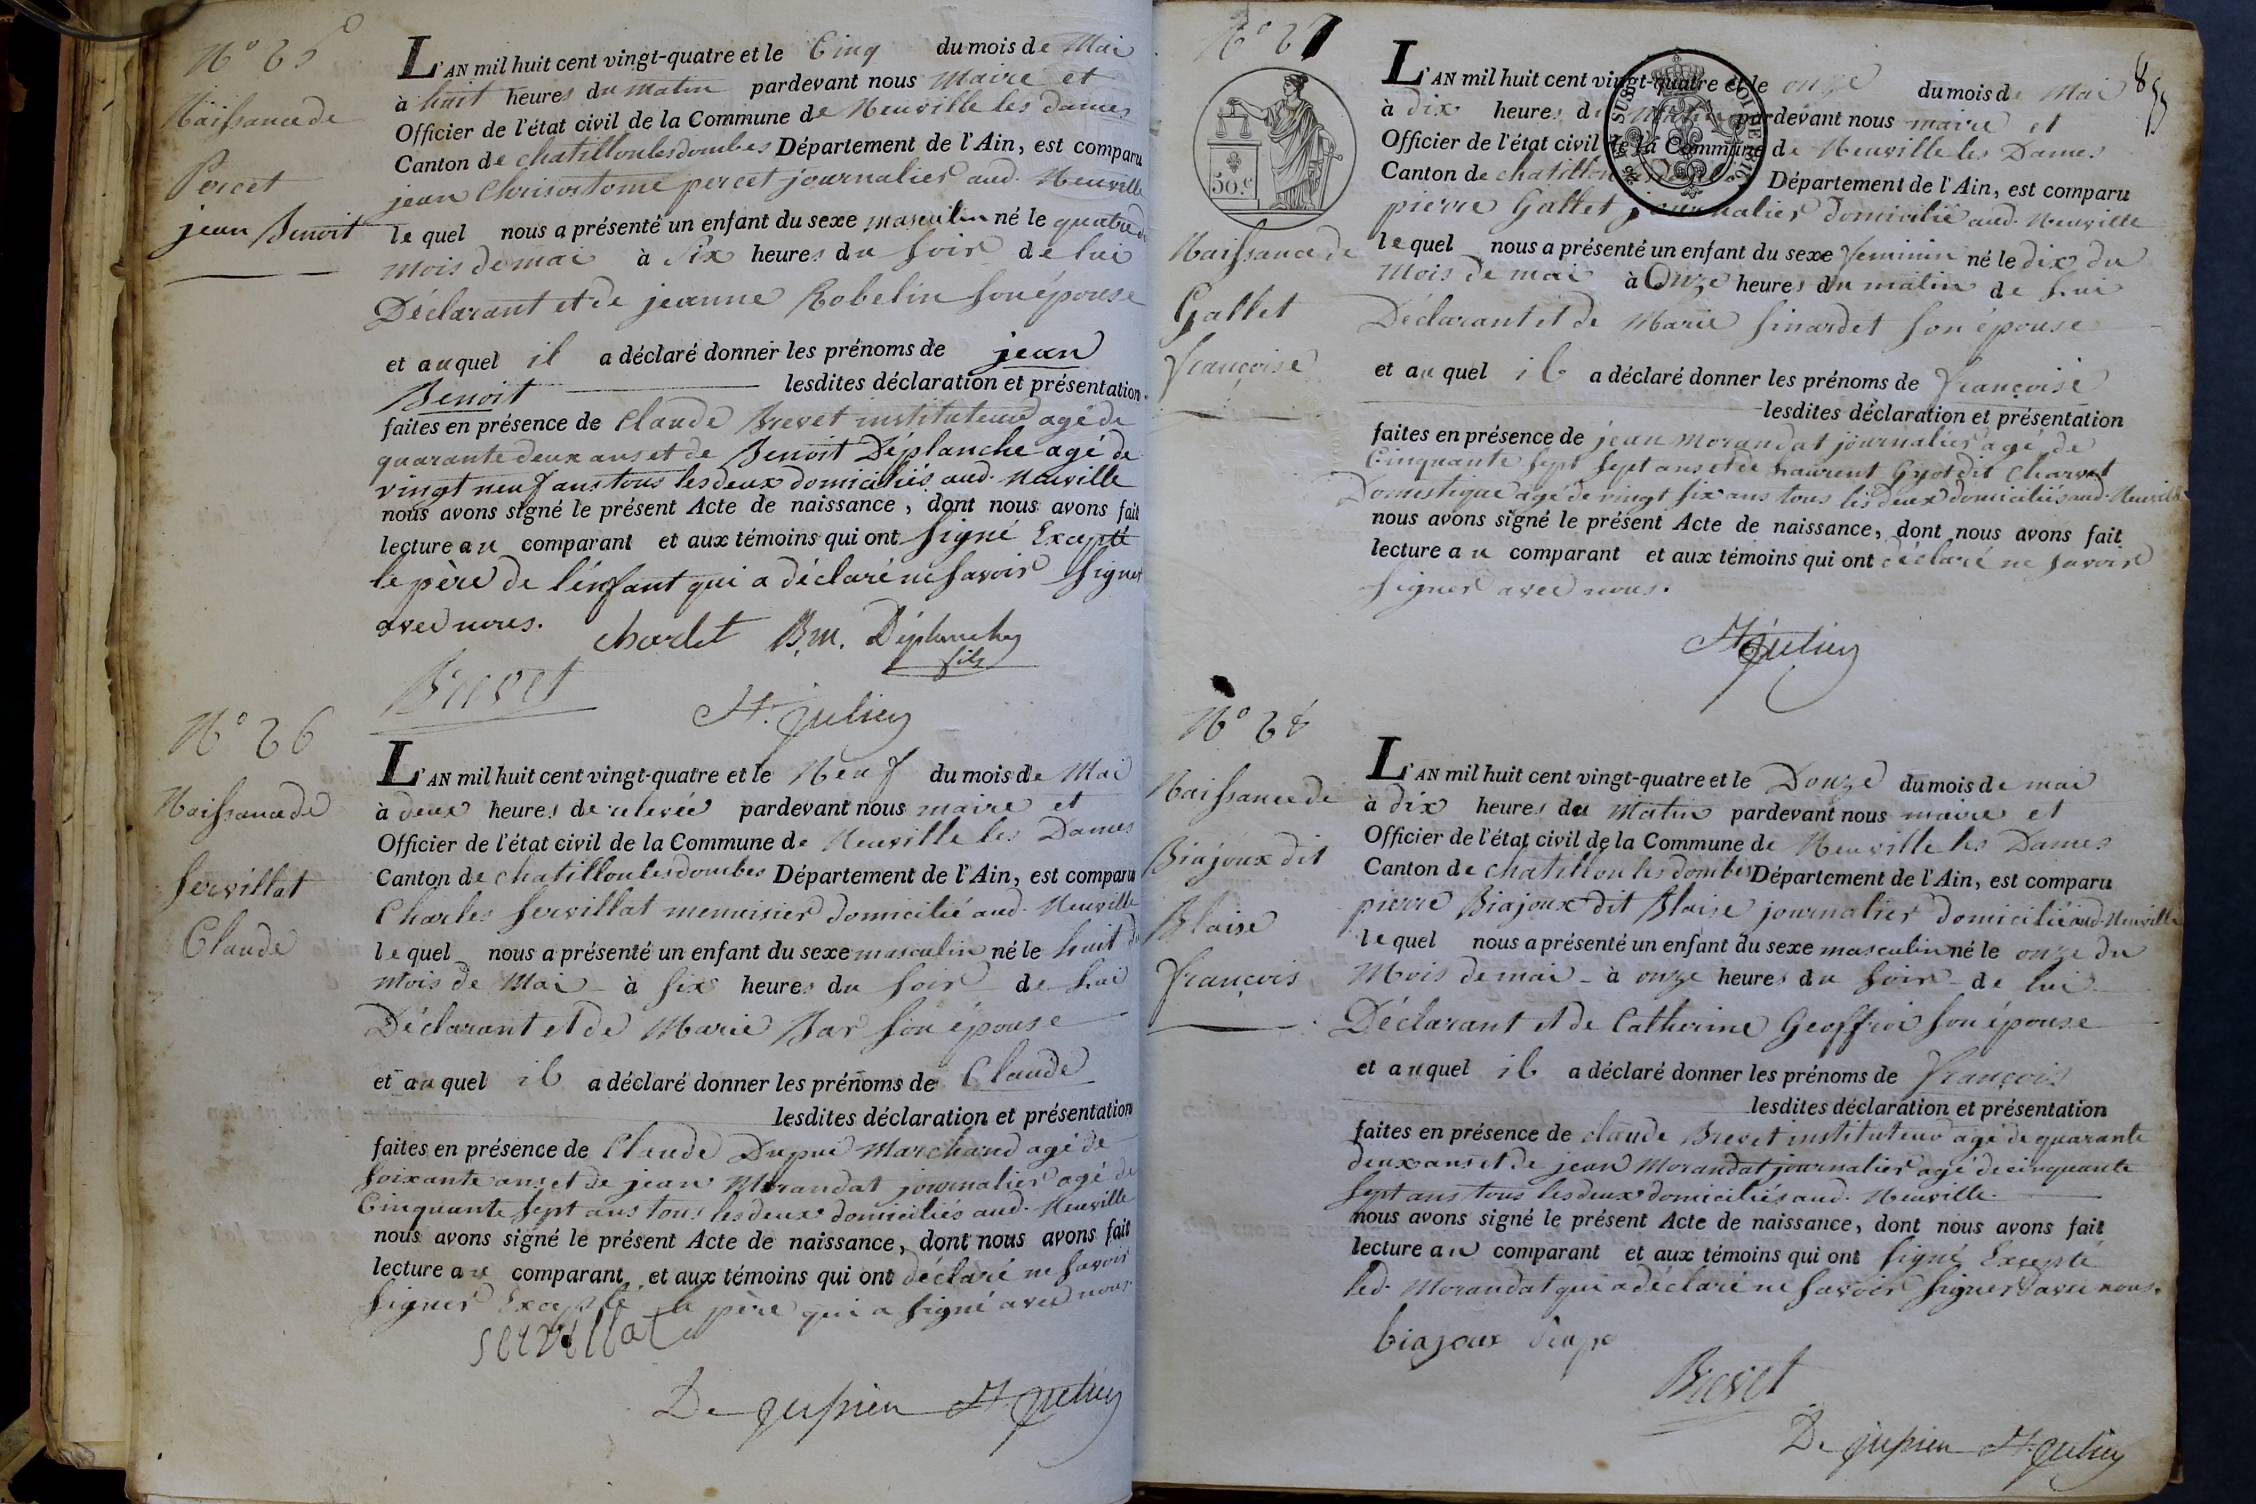 N° 25
Naissance de
Percet
jean Benoit
L'AN mil huit cent vingt-quatre et le Cinq du mois de Mai
à huit heures du matin pardevant nous Maire et
Officier de l'état civil de la Commune de Neuville les dames
Canton de chatillon les dombes Département de l'Ain, est comparu
jean Chrisostome percet journalier aud. Neuville
le quel nous a présenté un enfant du sexe masculin né le quatre du
mois de mai à Six heures du soir de lui
Déclarant et de jeanne Robelin son épouse
et auquel il a déclaré donner les prénoms de jean
Benoit lesdites déclaration et présentation
faites en présence de Claude Brevet instituteur agé de
quarante deux ans et de Benoit Déplanche agé de
vingt neuf ans tous les deux domiciliés aud. Neuville
nous avons signé le présent Acte de naissance, dont nous avons fait
lecture au comparant et aux témoins qui ont signé Excepté
le père de l'enfant qui a déclaré ne savoir signer
avec nous.
chorlet B.M. Déplanche
fils
Brevet
St. Julien
N° 26
Naissance de
Servillat
Claude
L'AN mil huit cent vingt-quatre et le Neuf du mois de Mai
à deux heures de relevée pardevant nous maire et
Officier de l'état civil de la Commune de Neuville les Dames
Canton de chatillon les dombes Département de l'Ain, est comparu
Charles Servillat menuisier domicilié aud. Neuville
le quel nous a présenté un enfant du sexe masculin né le huit du
mois de Mai à six heures du soir de lui
Déclarant et de Marie Bar son épouse
et auquel il a déclaré donner les prénoms de Claude
lesdites déclaration et présentation
faites en présence de Claude Dupui Marchand agé de
soixante ans et de jean Morandat journalier agé de
Cinquante sept ans tous les deux domiciliés aud. Neuville
nous avons signé le présent Acte de naissance, dont nous avons fait
lecture au comparant et aux témoins qui ont déclaré ne savoir
signer Excepté le père qui a signé avec nous
servillat
De jussieu St. Julien
N° 27
50.c
Naissance de
Gallet
françoise
855
L'AN mil huit cent vingt-quatre et le onze du mois de Mai
à dix heures du matin pardevant nous maire et
Officier de l'état civil de la Commune de Neuville les Dames
Canton de chatillon les dombes Département de l'Ain, est comparu
pierre Gallet journalier domicilié aud. Neuville
le quel nous a présenté un enfant du sexe feminin né le dix du
Mois de mai à Onze heures du matin de lui
Déclarant et de Marie Sinardet son épouse
et auquel il a déclaré donner les prénoms de françoise
lesdites déclaration et présentation
faites en présence de jean Morandat journalier agé de
Cinquante sept sept ans et de Laurent Gyot dit Charvet
Domestique agé de vingt six ans tous les deux domiciliés aud. Neuville
nous avons signé le présent Acte de naissance, dont nous avons fait
lecture au comparant et aux témoins qui ont déclaré ne savoir
signer avec nous.
St. Julien
N° 28
Naissance de
Biajoux dit
Blaise
françois
L'AN mil huit cent vingt-quatre et le Douze du mois de mai
à dix heures du Matin pardevant nous maire et
Officier de l'état civil de la Commune de Neuville les Dames
Canton de chatillon les dombes Département de l'Ain, est comparu
pierre Biajoux dit Blaise journalier domicilié aud. Neuville
le quel nous a présenté un enfant du sexe masculin né le onze du
Mois de mai à onze heures du soir de lui
Déclarant et de Catherine Geoffroi son épouse
et auquel il a déclaré donner les prénoms de françois
lesdites déclaration et présentation
faites en présence de claude Brevet instituteur agé de quarante
deux ans et de jean Morandat journalier agé de cinquante
sept ans tous les deux domiciliés aud. Neuville.
nous avons signé le présent Acte de naissance, dont nous avons fait
lecture au comparant et aux témoins qui ont signé Excepté
led. Morandat qui a déclaré ne savoir signer avec nous.
biajoux
Brevet
De jussieu St. Julien